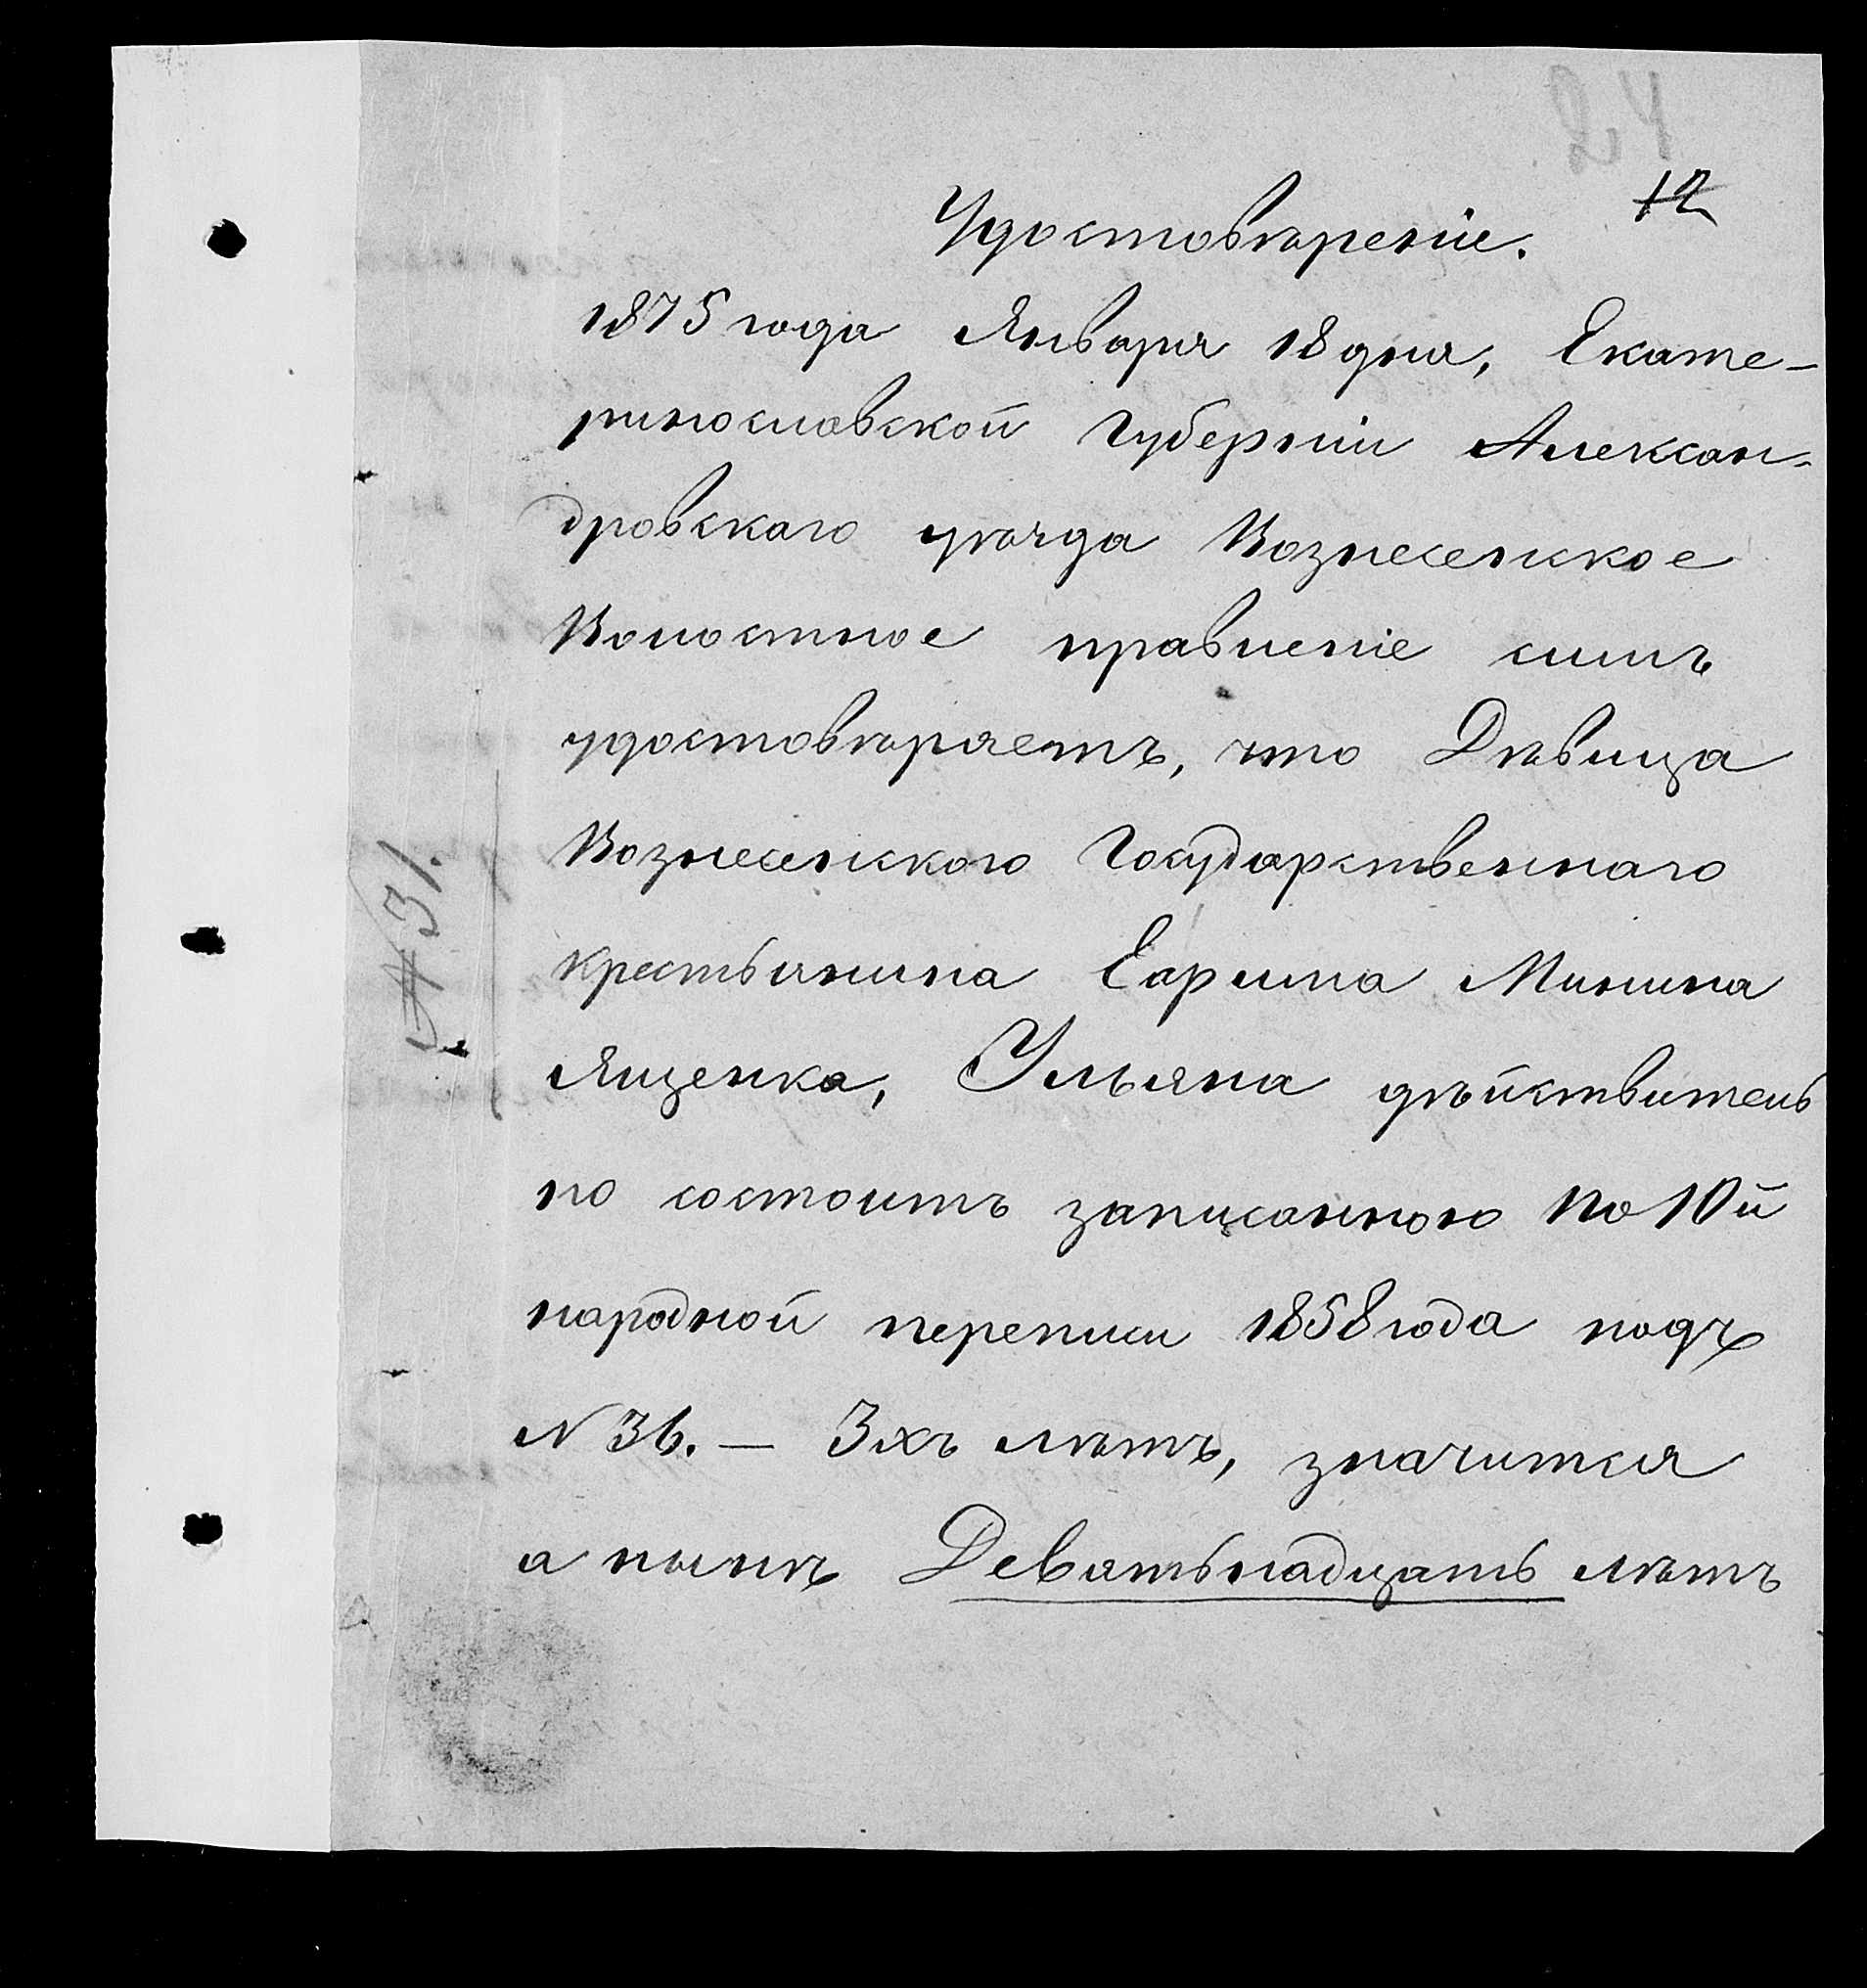 24
12
Удостовѣреніе.
1875 года Января 18 дня, Екате-
ринославской Губерніи Алексан-
дровскаго уѣзда Вознесенское
Волостное правленіе симъ
удостовѣряетъ, что Дѣвица
Вознесенского Государственнаго
крестьянина Ефрима Минина
Ященка, Ульяна дѣйствитель
но состоитъ записанною по 10й
народной переписи 1858 года подъ
N 36. — 3хъ лѣтъ, значится
а нынѣ Девятьнадцать лѣтъ
№ 31.